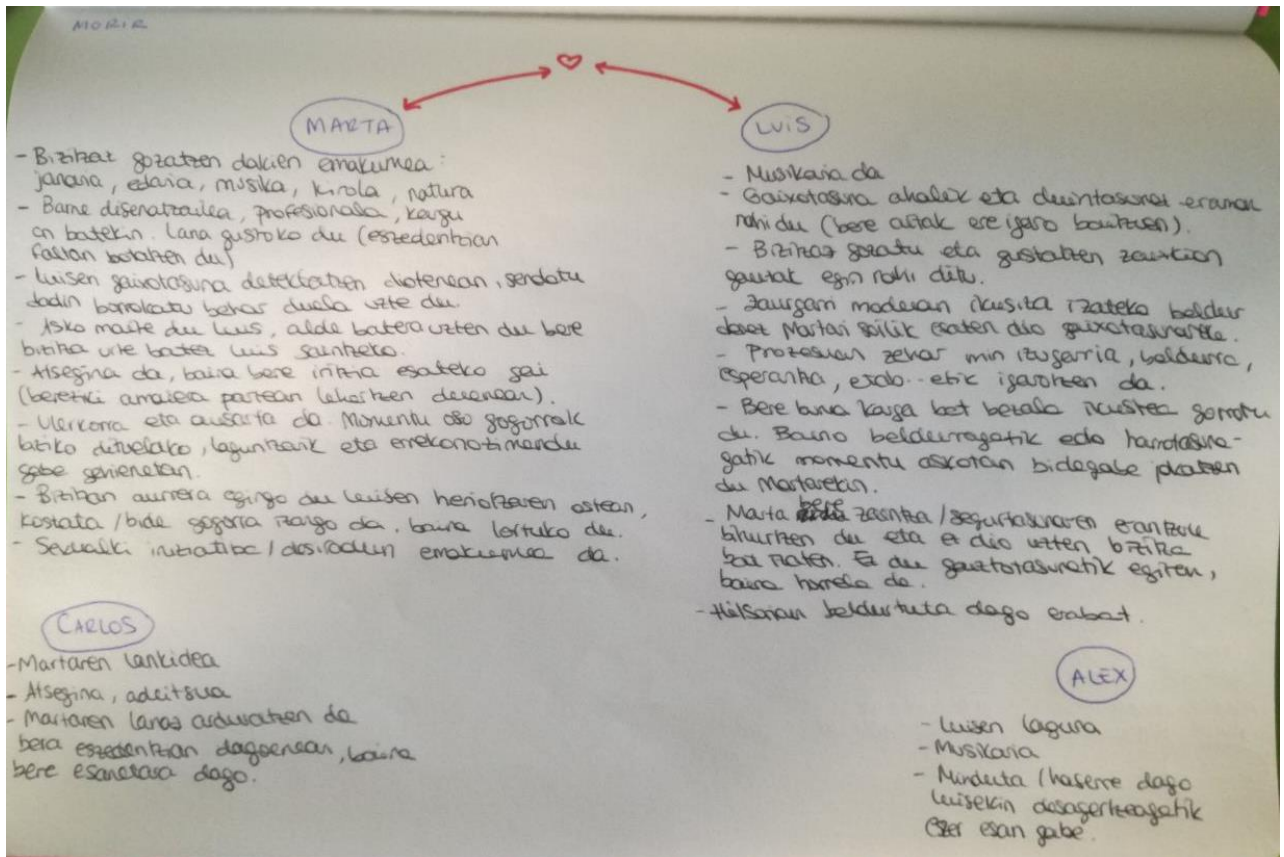 MORIR
MARTA
- Bizitzaz gozatzen dakien emakumea:
janaria, edaria, musika, kirola, natura
- Barne disenatzailea, profesionala, kargu
on batekin. Lana gustoko du (eszedentzian
faltan botatzen du)
- Luisen gaixotasuna detektatzen diotenean, sendatu
dadin borrokatu behar duela uste du.
- Asko maite du Luis, alde batera uzten du bere
bizitza urte batez Luis zaintzeko.
- Atsegina da, baina bere iritzia esateko gai
(bereziki amaiera partean lehertzen denean).
- Ulerkorra eta ausarta da. Momentu oso gogorrak
biziko dituelako, laguntzarik eta errekonozimendu
gabe gehienetan.
- Bizitzan aurrera egingo du Luisen heriotzaren ostean,
kostata / bide gogorra izango da, baina lortuko du.
- Sexualki iniziatiba / desiradun emakumea da.
CARLOS
- Martaren lankidea
- Atsegina, adeitsua
- Martaren lanaz arduratzen da
bera eszedentzian dagoenean, baina
bere esanetara dago.
LUIS
- Musikaria da
- Gaixotasuna ahalik eta duintasunez eraman
nahi du (bere aitak ere igaro baitzuen).
- Bizitzaz gozatu eta gustatzen zaizkion
gauzak egin nahi ditu.
- Zaurgarri moduan ikusita izateko beldur
denez Martari soilik esaten dio gaixotasunarena.
- Prozesuan zehar min izugarria, beldurra,
esperantza, ...etik igarotzen da.
- Bere burua karga bat bezala ikustea gorroto
du. Baino beldurragatik edo harrotasuna-
gatik momentu askotan bidegabe jokatzen
du Martarekin.
- Marta bere zaintza / segurtasunaren erantzule
bihurtzen du eta ez dio uzten bizitza
bat izaten. Ez du gaiztotasunetik egiten,
baina horrela da.
- Hilzorian beldurtuta dago erabat.
ALEX
- Luisen laguna
- Musikaria
- Minduta / haserre dago
Luisekin desagertzeagatik
ezer esan gabe.